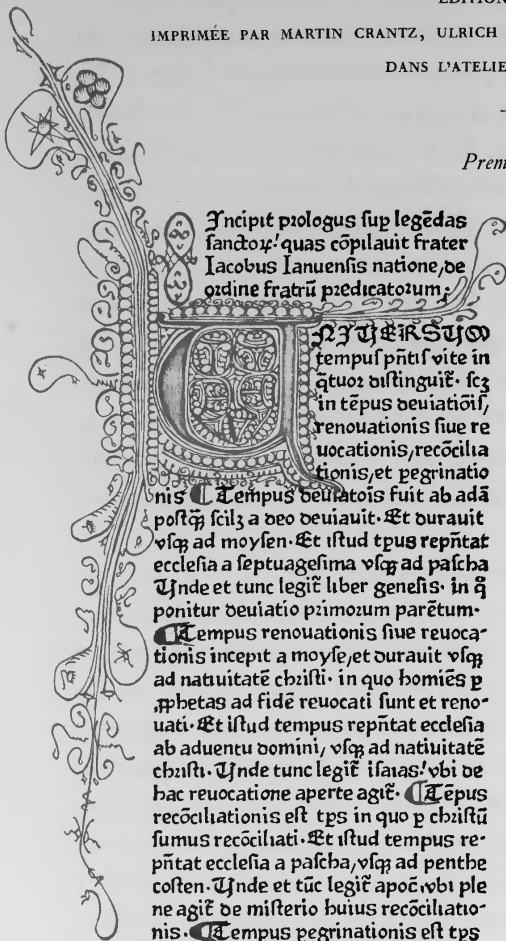 ÉDITION
IMPRIMÉE PAR MARTIN CRANTZ, ULRICH
DANS L'ATELIE
Prem
Incipit prologus sup legēdas
sanctoꝝ! quas cōpilauit frater
Iacobus Ianuensis natione, de
ordine fratrū predicatorum;
UNIUERSUM
tempus pñtis vite in
q̄tuor distinguit̄. scꝫ
in tēpus deuiatiōis,
renouationis siue re
uocationis, recōcilia
tionis, et pegrinatio
nis ¶ Tempus deuiatōis fuit ab adā
postqꝫ scilꝫ a deo deuiauit. Et durauit
vsqꝫ ad moysen. Et istud tpus repñtat
ecclesia a septuagesima vsqꝫ ad pascha
Unde et tunc legit̄ liber genesis. in q̄
ponitur deuiatio primorum parētum.
¶ Tempus renouationis siue reuoca-
tionis incepit a moyse, et durauit vsqꝫ
ad natiuitatē christi. in quo homiēs ꝑ
ꝓphetas ad fidē reuocati sunt et reno-
uati. Et istud tempus repñtat ecclesia
ab aduentu domini, vsqꝫ ad natiuitatē
christi. Unde tunc legit̄ isaias! vbi de
hac reuocatione aperte agit̄. ¶ Tēpus
recōciliationis est tps in quo ꝑ christū
sumus recōciliati. Et istud tempus re-
pñtat ecclesia a pascha, vsqꝫ ad penthe
costen. Unde et tūc legit̄ apoc̄. vbi ple
ne agit̄ de misterio huius recōciliatio-
nis. ¶ Tempus pegrinationis est tps